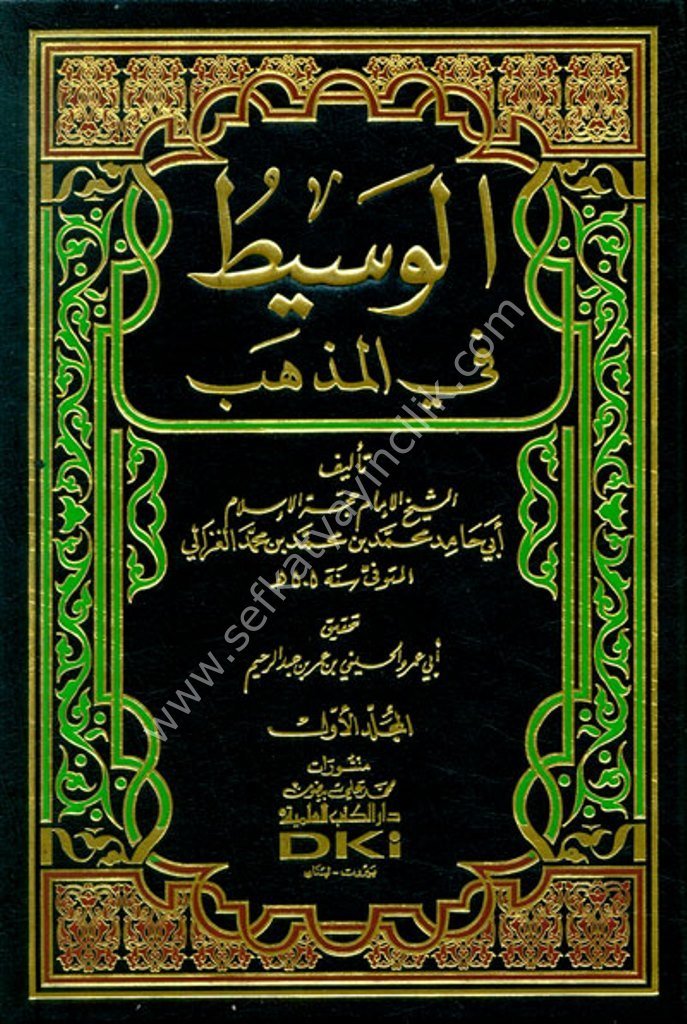 الوَسِيطُ
في المذهَب
تأليف
الشيخ الإمام حجة الإسلام
أبي حامد محمد بن محمد بن محمد الغزالي
المتوفى سنة ٥٠٥ هـ
تحقيق
أبي عمرو الحسيني بن عمر بن عبد الرحيم
المجلد الأول
منشورات
محمد علي بيضون
دار الكتب العلمية
DKi
بيروت - لبنان
www.sefkatyayincilik.com